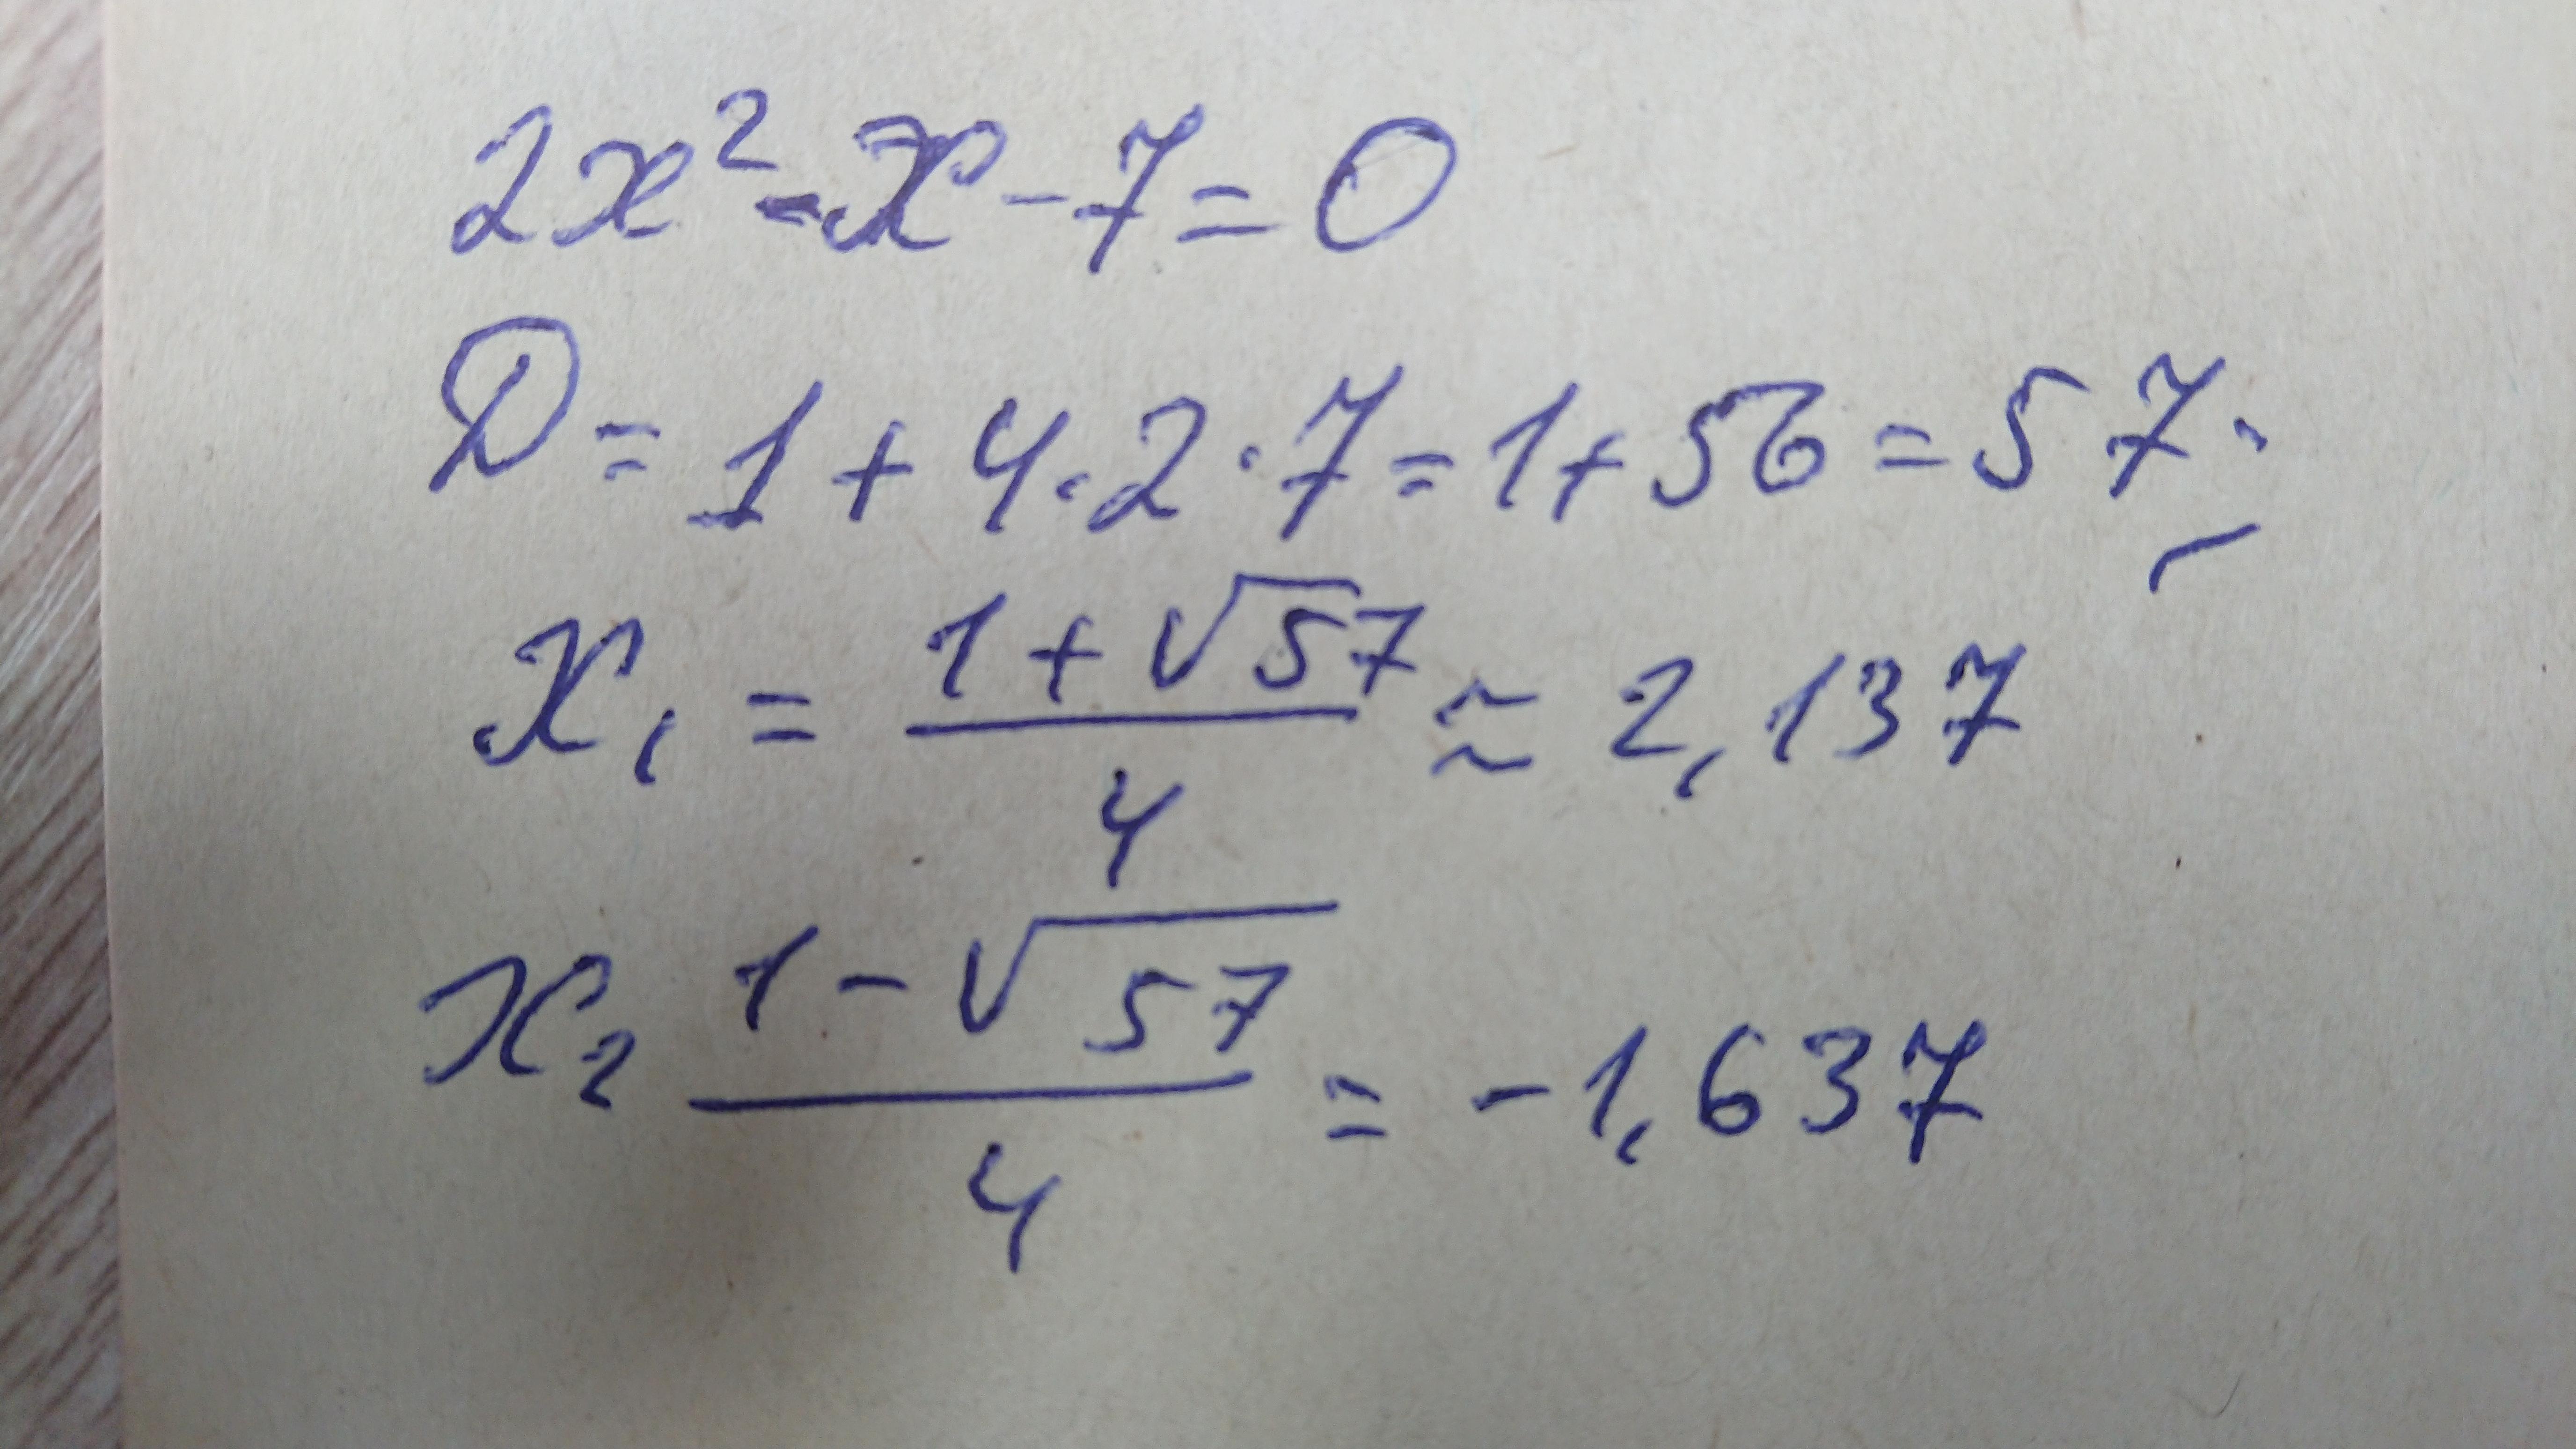 2x² - x - 7 = 0
D = 1 + 4·2·7 = 1 + 56 = 57;
x₁ = (1 + √57)/4 ≈ 2,137
x₂ (1 - √57)/4 = -1,637